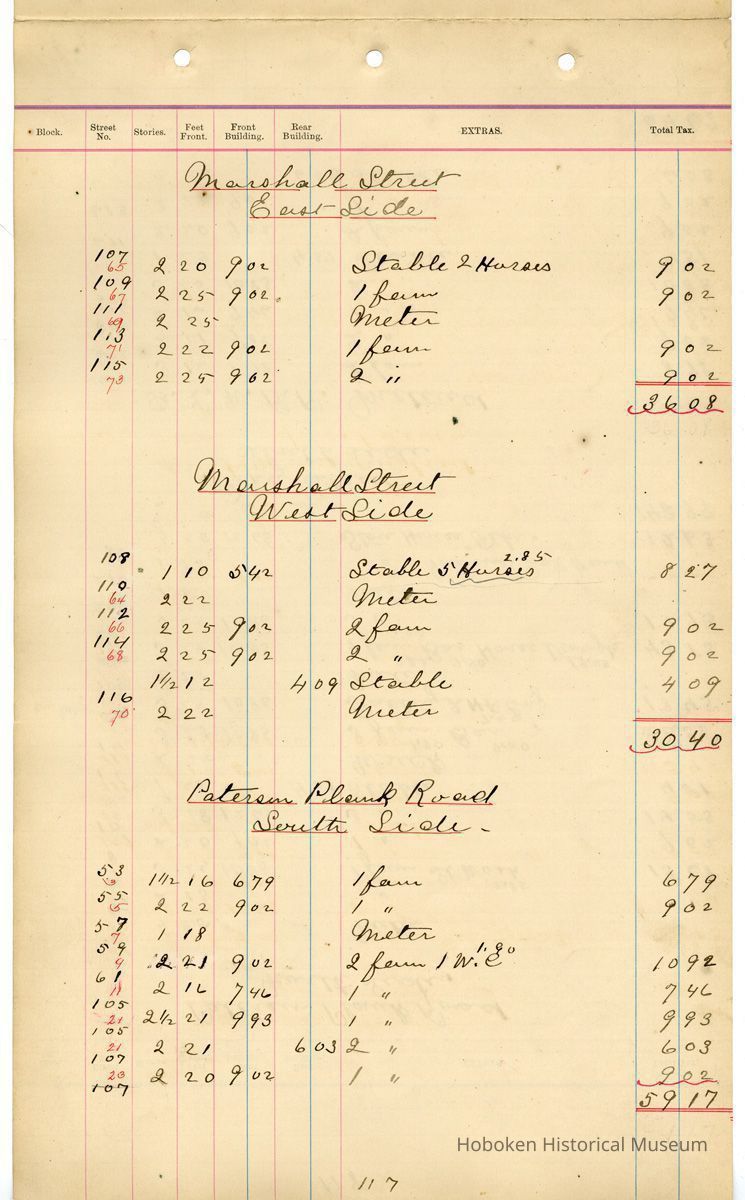 Block. Street No. Stories. Feet Front. Front Building. Rear Building. EXTRAS. Total Tax.
Marshall Street
East Side
107
65 2 20 9 02 Stable 2 Horses 9 02
109
67 2 25 9 02 1 fam 9 02
111
69 2 25 Meter
113
71 2 22 9 02 1 fam 9 02
115
73 2 25 9 02 2 " 9 02
36 08
Marshall Street
West Side
108 2.85
1 10 5 42 Stable 5 Horses 8 27
110
64 2 22 Meter
112
66 2 25 9 02 2 fam 9 02
114
68 2 25 9 02 2 " 9 02
1 1/2 12 4 09 Stable 4 09
116
70 2 22 Meter
30 40
Paterson Plank Road
South Side -
53
3 1 1/2 16 6 79 1 fam 6 79
55
5 2 22 9 02 1 " 9 02
57
7 1 18 Meter
59 1.90
9 2 21 9 02 2 fam 1 W.C 10 92
61
11 2 16 7 46 1 " 7 46
105
21 2 1/2 21 9 93 1 " 9 93
105
21 2 21 6 03 2 " 6 03
107
23 2 20 9 02 1 " 9 02
107
59 17
Hoboken Historical Museum
117